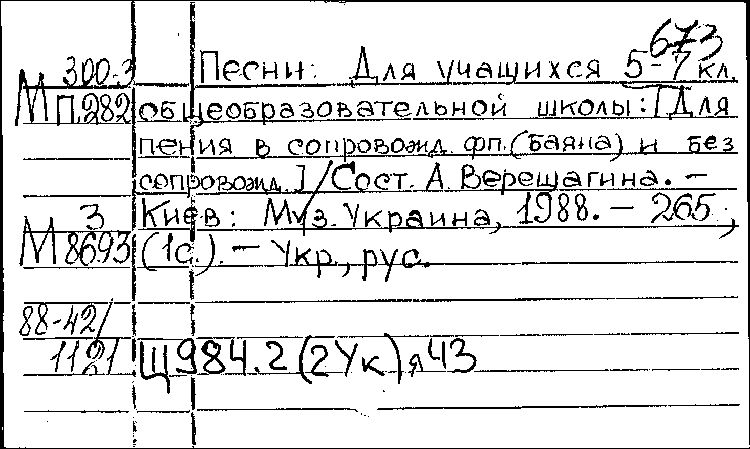 673
300-3 Песни: Для учащихся 5-7 кл.
М П.282 общеобразовательной школы: [Для
пения в сопровожд. фп. (баяна) и без
сопровожд.] / Сост. А. Верещагина. –
З Киев: Муз. Украина, 1988. – 265,
М 8693 (1с.). – Укр., рус.
88-42/
1121 Щ984.2(2Ук)я43